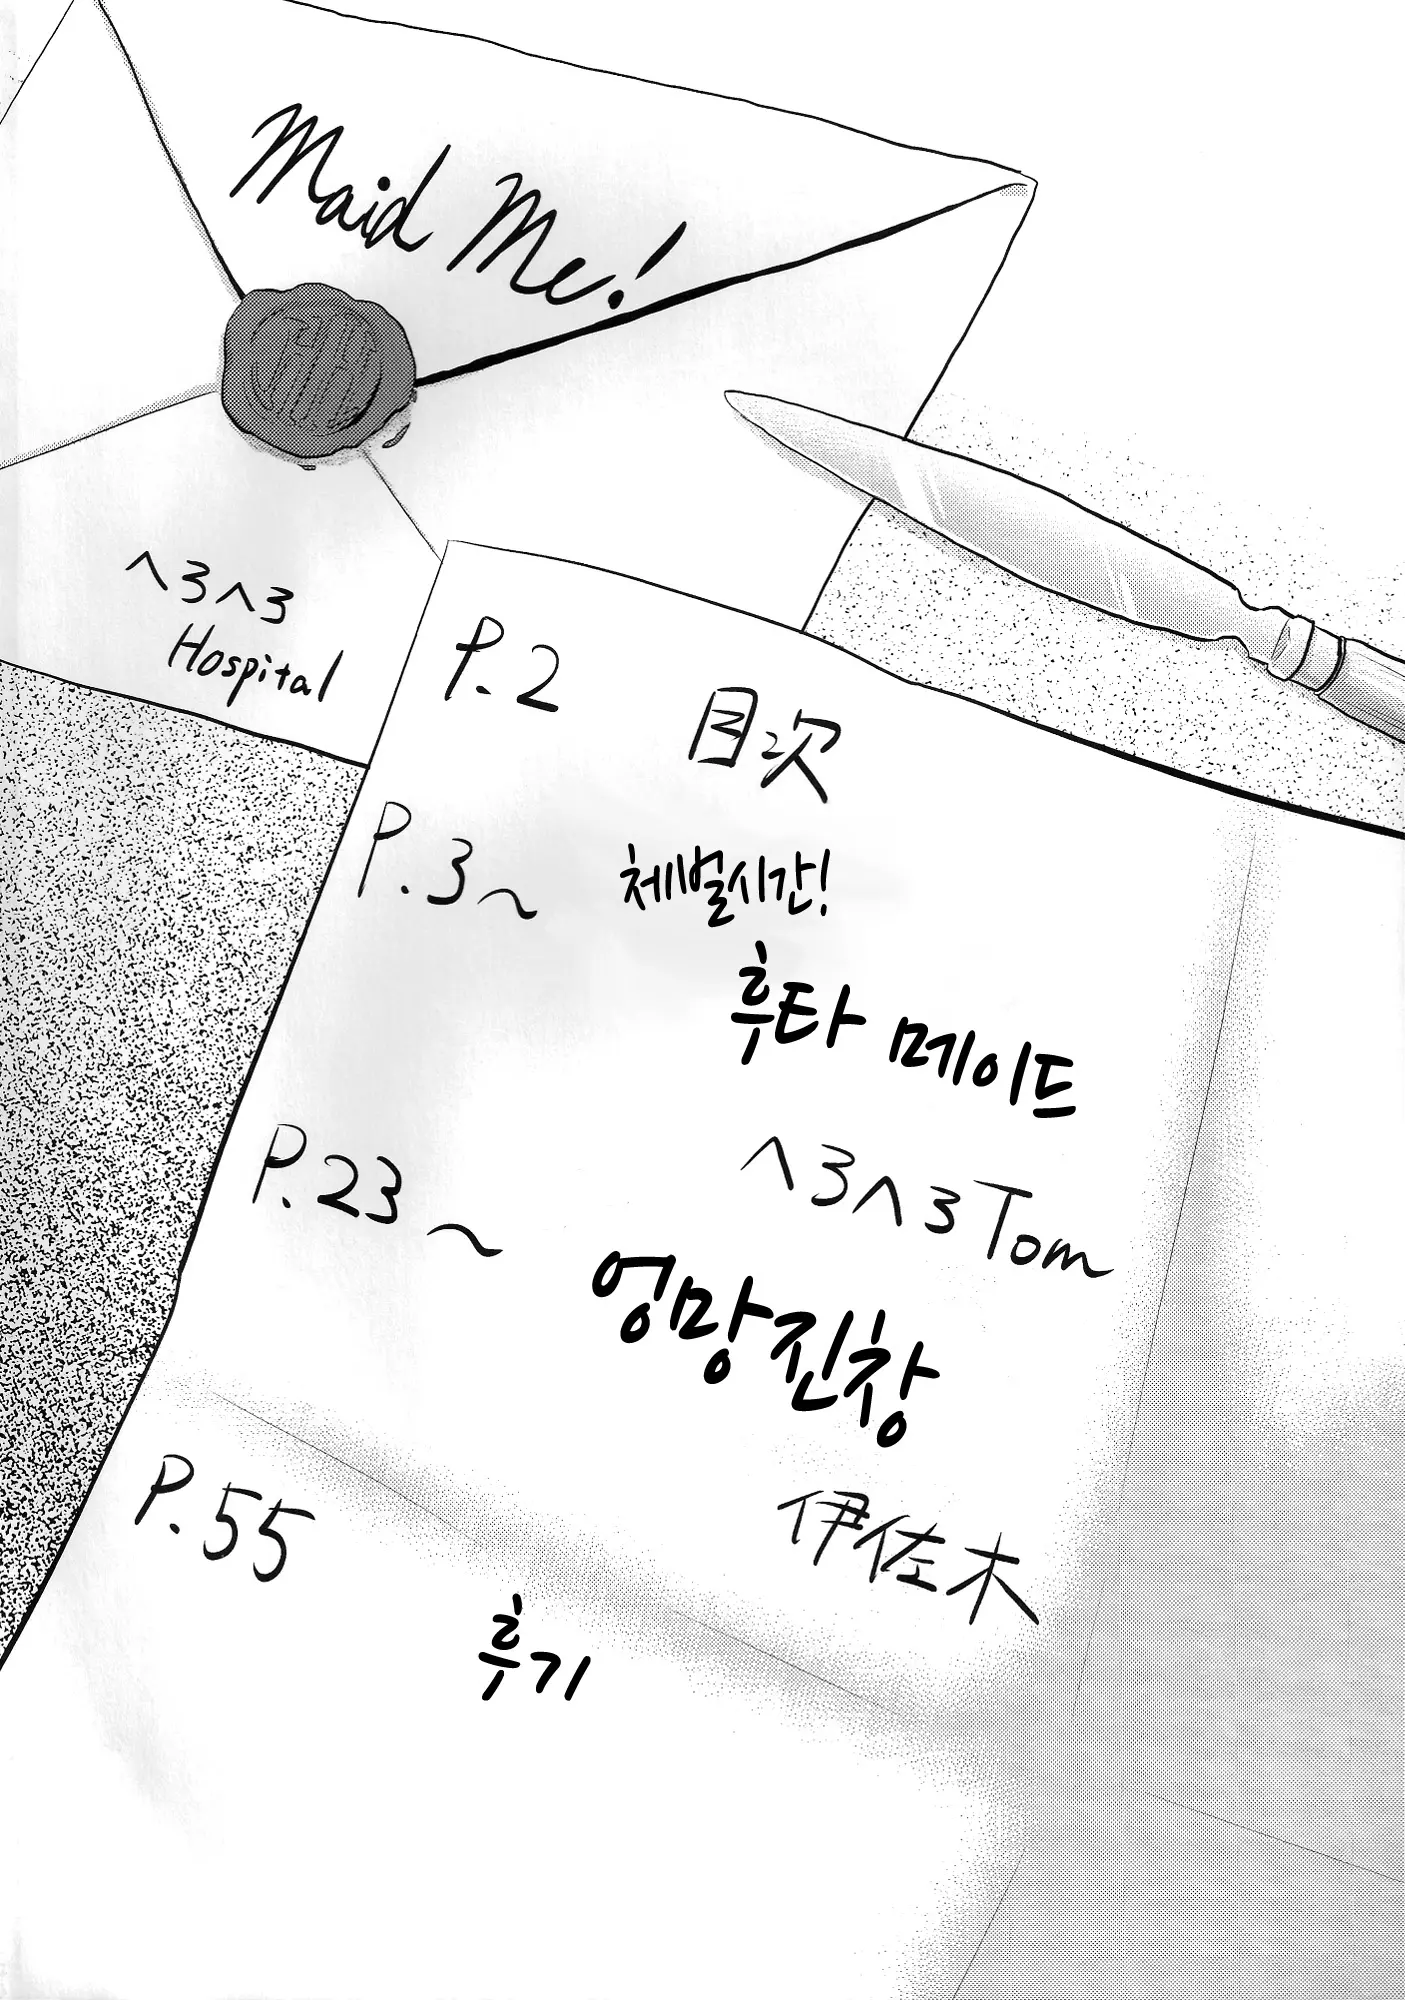 Maid Me!
へ3へ3
Hospital
P.2 目次
P.3～ 체벌시간!
후타 메이드
へ3へ3Tom
P.23～ 엉망진창
伊佐木
P.55 후기